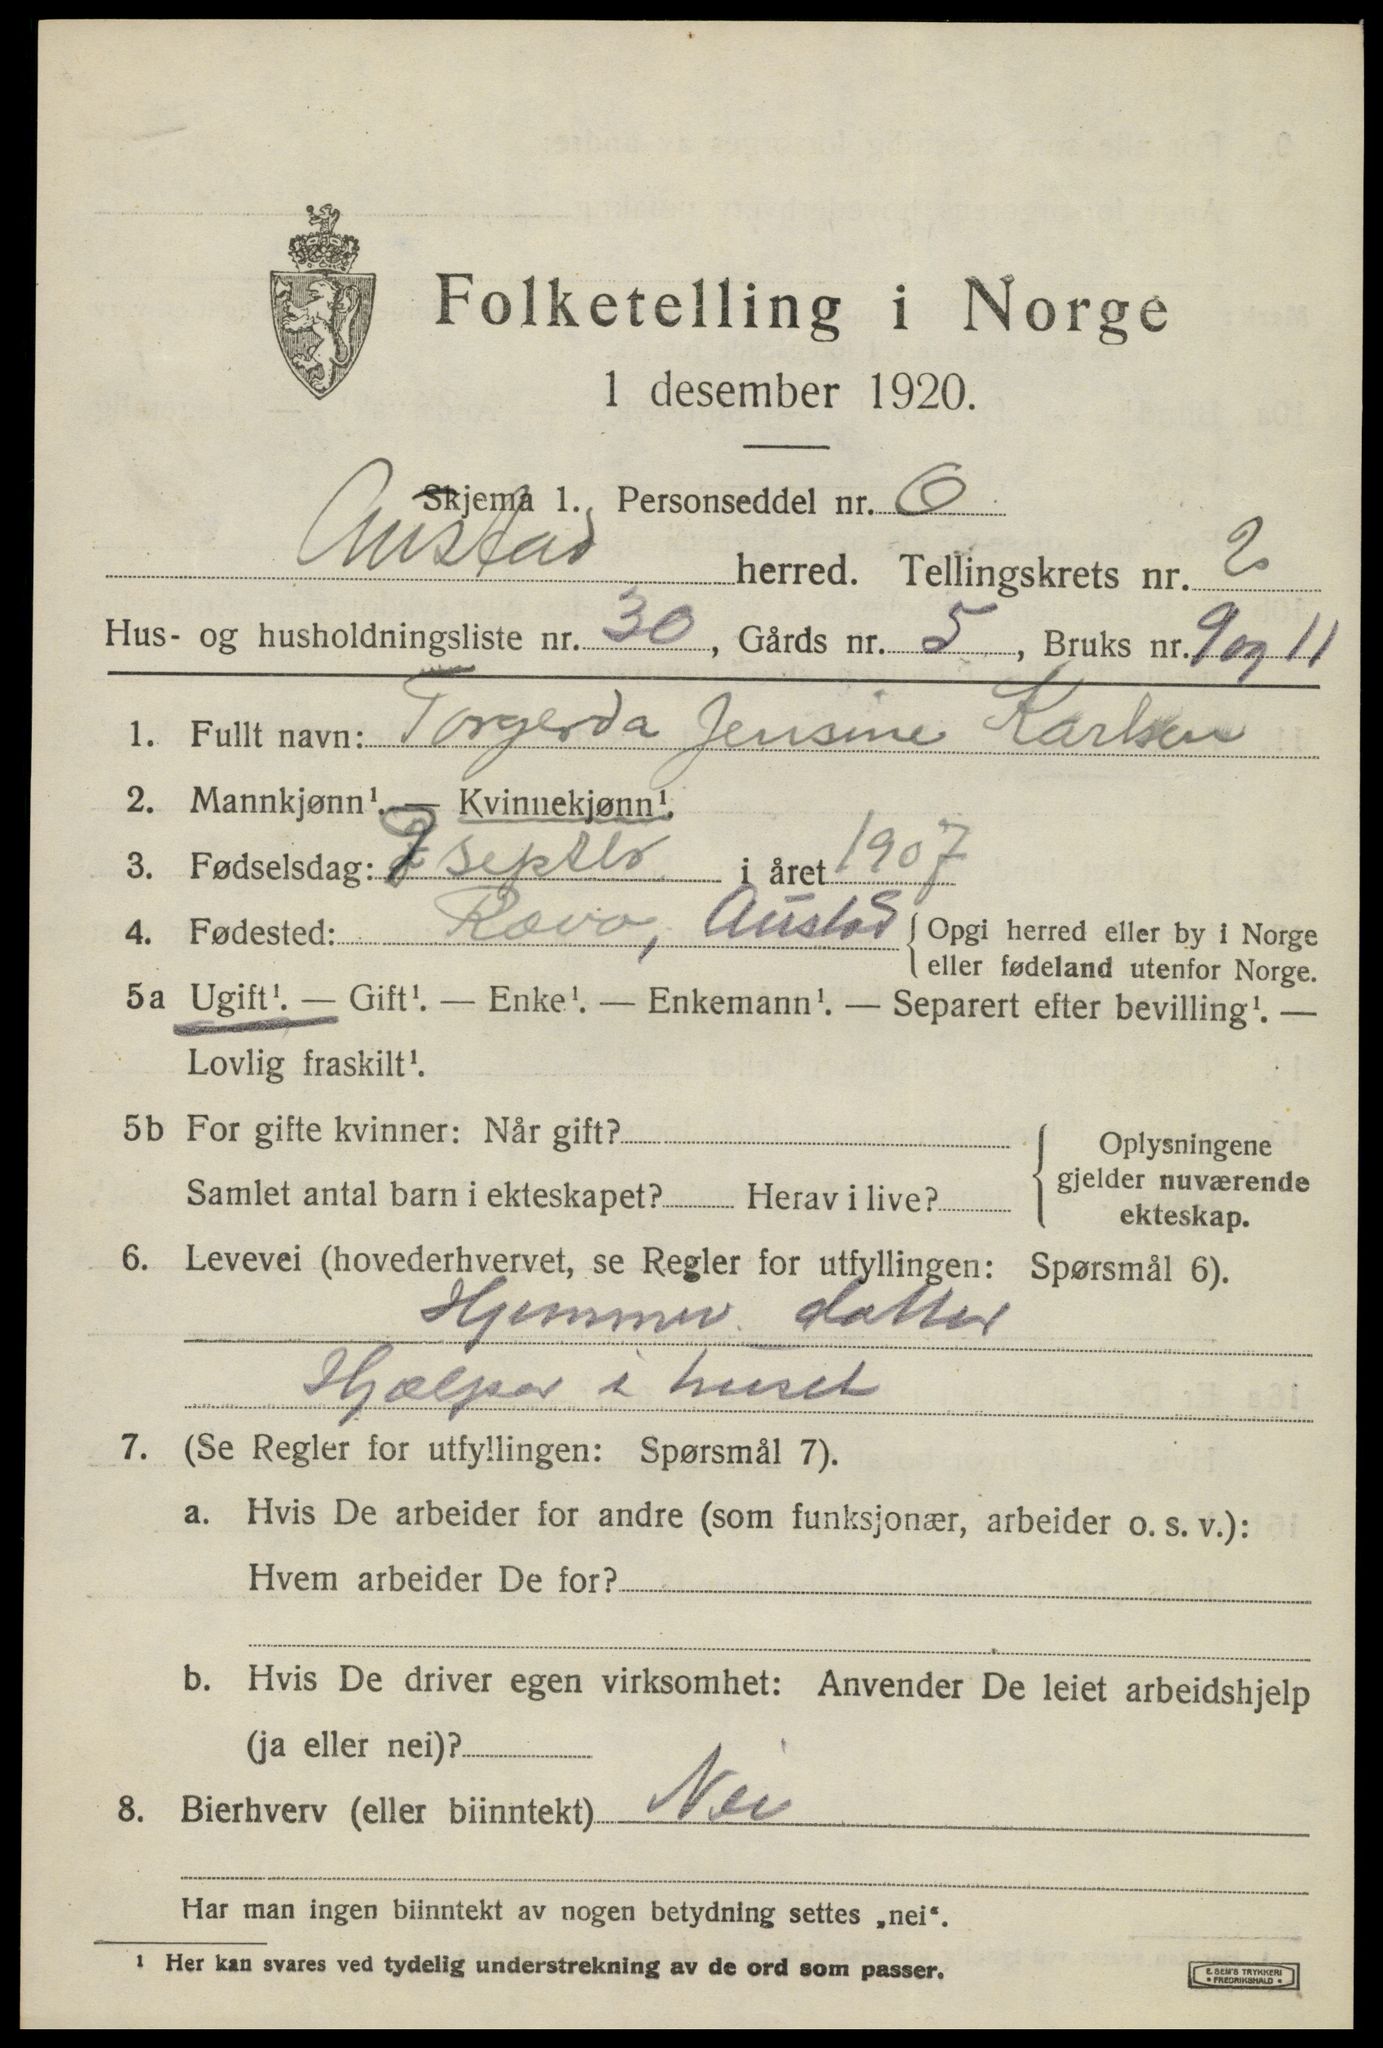 Folketelling i Norge
1 desember 1920.
Skjema 1. Personseddel nr. 6
Austad herred. Tellingskrets nr. 2
Hus- og husholdningsliste nr. 30, Gårds nr. 5, Bruks nr. 9 og 11
1. Fullt navn: Torgerda Jensine Karlsen
2. Mannkjønn¹. — Kvinnekjønn¹.
3. Fødselsdag: septbr i året 1907
4. Fødested: Austad { Opgi herred eller by i Norge
eller fødeland utenfor Norge.
5a Ugift¹. — Gift¹. — Enke¹. — Enkemann¹. — Separert efter bevilling¹. —
Lovlig fraskilt¹.
5b For gifte kvinner: Når gift?
Samlet antal barn i ekteskapet? Herav i live?
{ Oplysningene
gjelder nuværende
ekteskap.
6. Levevei (hovederhvervet, se Regler for utfyllingen: Spørsmål 6).
Hjemmev. datter
Hjælper i huset
7. (Se Regler for utfyllingen: Spørsmål 7).
a. Hvis De arbeider for andre (som funksjonær, arbeider o. s. v.):
Hvem arbeider De for?
b. Hvis De driver egen virksomhet: Anvender De leiet arbeidshjelp
(ja eller nei)?
8. Bierhverv (eller biinntekt) Nei
Har man ingen biinntekt av nogen betydning settes „nei“.
¹ Her kan svares ved tydelig understrekning av de ord som passer.
E. SEM'S TRYKKERI
• FREDRIKSHALD •